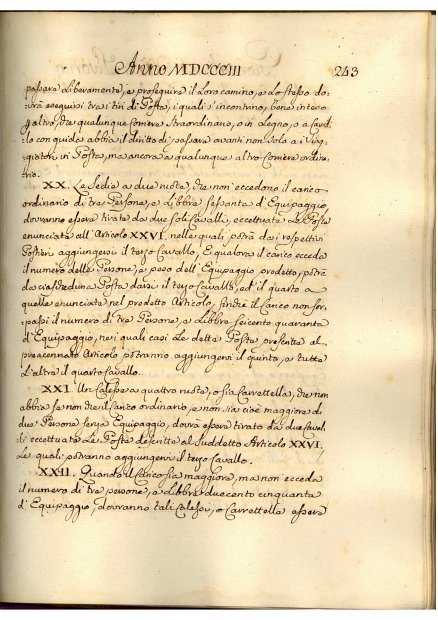 Anno MDCCCIII
243
passare liberamente, e proseguire il loro camino, e lo stesso do-
vrà eseguirsi tra i tiri di Posta, i quali s'incontrino, bene inteso
p altro, che qualunque Corriere Straordinario, o in Legno, o a Caval-
lo con guida abbia il diritto di passare avanti non solo a i Viag-
giatori in Posta, ma ancora a qualunque altro Corriere ordina-
rio.
XX. Le Sedie a due ruote, che non eccedono il carico
ordinario di tre Persone, e Libbre sessanta d'Equipaggio,
dovranno essere tirate da due soli Cavalli, eccettuate le Poste
enunciate all'Articolo XXVI, nelle quali potrà dai respettivi
Postieri aggiungersi il terzo Cavallo, E qualora il carico ecceda
il numero delle Persone, e peso dell'Equipaggio predetto, potrà
da ciascheduna Posta darsi il terzo Cavallo, ed il quarto a
quelle enunciate nel predetto Articolo, finchè il Carico non sor-
passi il numero di tre Persone, e Libbre seicento quaranta
d'Equipaggio, nei quali casi le dette Poste prescritte al
preaccennato Articolo potranno aggiungervi il quinto, e tutte
l'altre il quarto Cavallo.
XXI. Un Calesse a quattro ruote, o sia Carrettella, che non
abbia se non che il Carico ordinario, e non sia cioè maggiore di
due Persone senza Equipaggio, dovrà essere tirato da due Caval-
li eccettuate le Poste descritte al suddetto Articolo XXVI,
le quali potranno aggiungervi il terzo Cavallo.
XXII. Quando il Carico sia maggiore, ma non ecceda
il numero di tre persone, e libbre duecento cinquanta
d'Equipaggio, dovranno tali Calessi, o Carrettelle essere